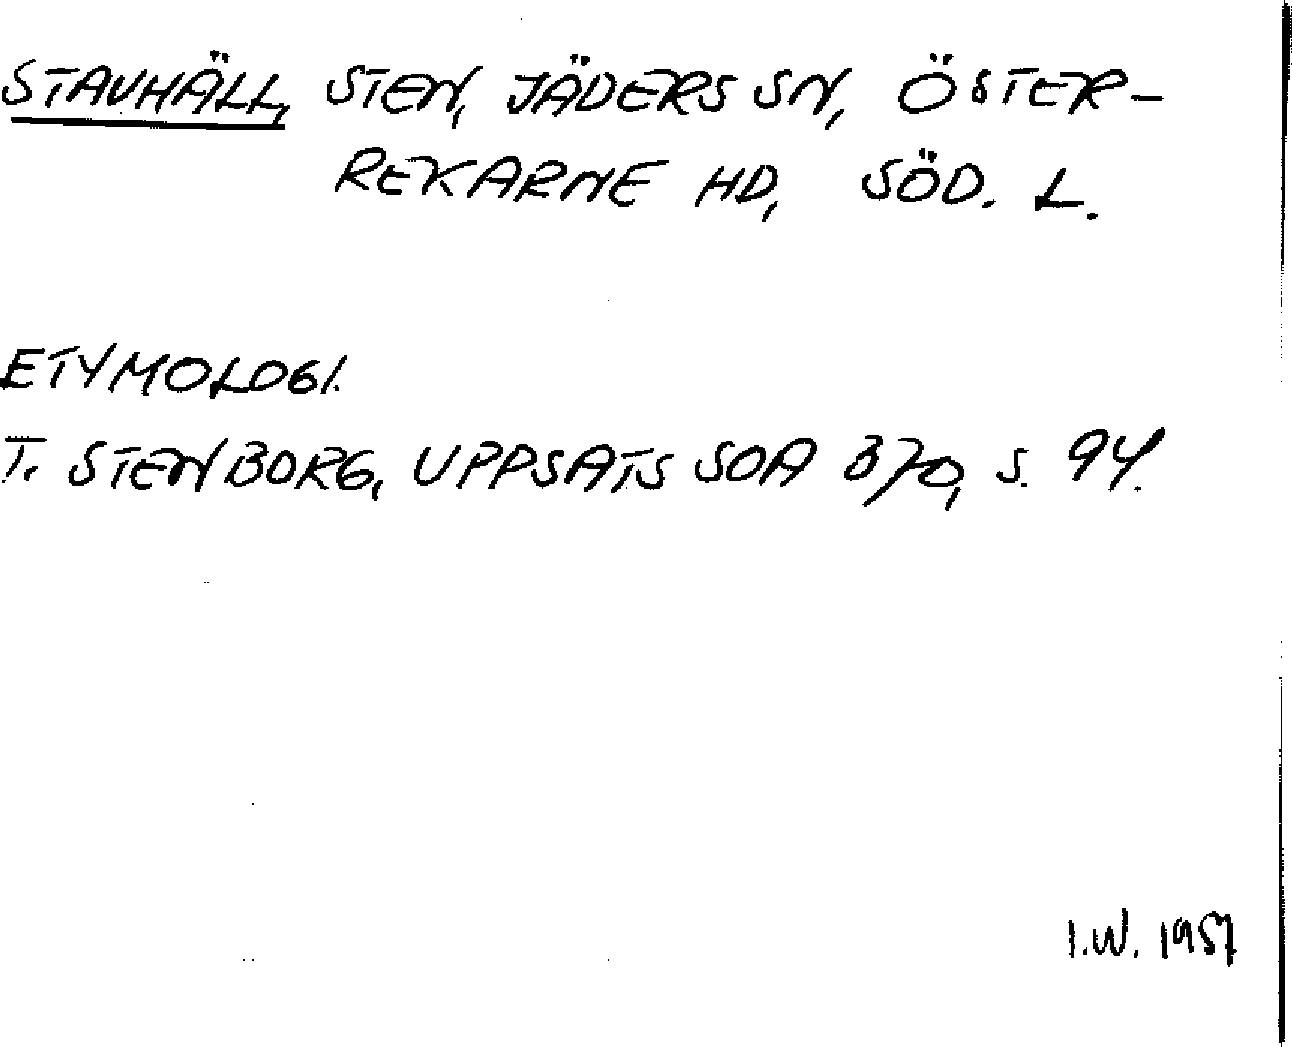 STAVHÄLL, STEN, JÄDERS SN, ÖSTER-
REKARNE HD, SÖD. L.
ETYMOLOGI.
T. STENBORG, UPPSATS SOA 370, S. 94.
I.W. 1957